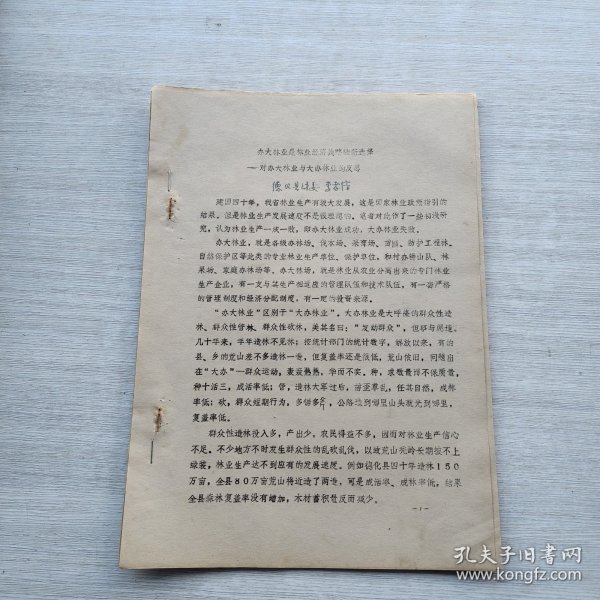 办大林业是林业经济战略的新选择
——对办大林业与大办林业的反思
德化县林委 李
建国四十年，我省林业生产有较大发展，这是国家林业政策指引的
结果。但是林业生产发展速度不是很理想的。笔者对此作了一些初浅研
究，认为林业生产一成一败，即办大林业成功，大办林业失败。
办大林业，就是各级办林场、伐木场、采育场、苗圃、防护工程林、
自然保护区等此类的专业林业生产单位、保护单位，和村办耕山队、林
果场、家庭办林场等。办大林场，就是林业从农业分离出来的专门林业
生产企业，有一支与其生产相适应的管理队伍和技术队伍，有一套严格
的管理制度和经济分配制度，有一定的投资来源。
“办大林业”区别于“大办林业”。大办林业是大呼隆的群众性造
林、群众性管林、群众性砍林，美其名曰：“发动群众”，但却与愿违。
几十年来，年年造林不见林；按统计部门的统计数字，解放以来，有的
县、乡的荒山差不多造林一遍，但复盖率还是很低，荒山依旧，问题出
在“大办”—群众运动，轰轰熱熱，华而不实。种，求数量而不保质量，
种十活三，成活率低；管，造林大军过后，苗歪草乱，任其自然，成林
率低；砍，群众短期行为，多留多，公路造到哪里山头就光到哪里，
复盖率低。
群众性造林投入多，产出少，农民得益不多，因而对林业生产信心
不足。不少地方不时发生群众性的乱砍乱伐，以致荒山秃岭长期披不上
绿装，林业生产达不到应有的发展速度。例如德化县四十年造林150
万亩，全县80万亩荒山将近造了两遍，可是成活率、成林率低，结果
全县森林复盖率没有增加，木材蓄积量反而减少。
-1-
孔夫子旧书网
www.kongfz.com